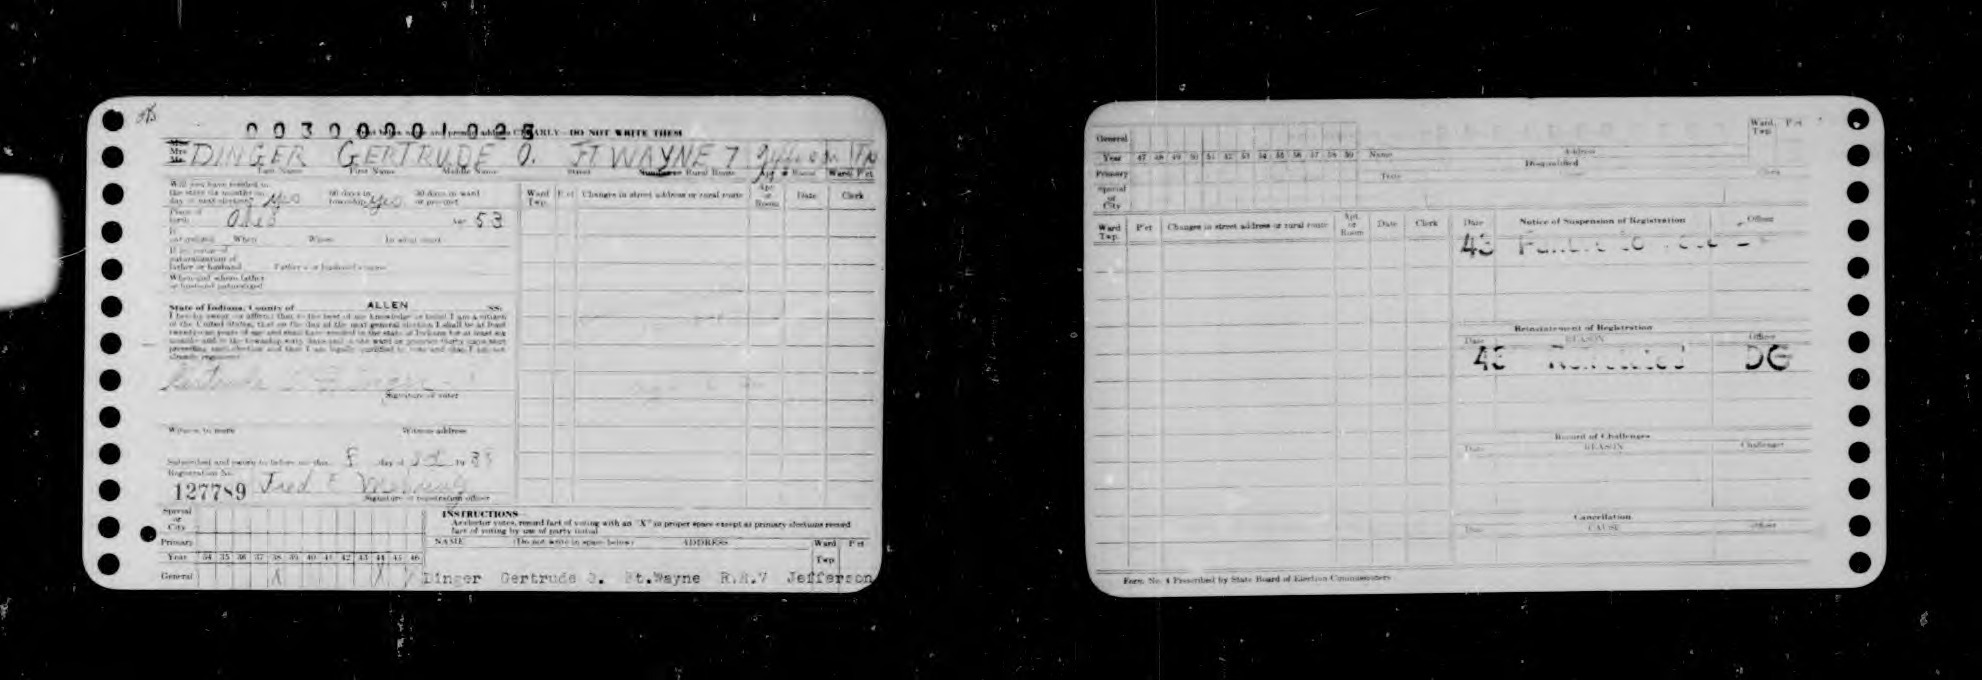 0030001025
Print below name and present address CLEARLY - DO NOT WRITE THEM
Mrs.
DINGER GERTRUDE O. FT WAYNE 7 Jefferson
Last Name First Name Middle Name Street Number or Rural Route Apt. or Room Ward Pct
Will you have resided in the state six months on day of next election? Yes 60 days in township Yes 30 days in ward or precinct
Place of birth Age 53
If naturalized When Where In what court
If by virtue of naturalization of father or husband Father's or husband's name
When and where father or husband naturalized
State of Indiana, County of ALLEN SS:
I hereby swear (or affirm) that to the best of my knowledge or belief I am a citizen
of the United States, that on the day of the next general election I shall be at least
twenty-one years of age and shall have resided in the state of Indiana for at least six
months and in the township sixty days and in the ward or precinct thirty days next
preceding such election and that I am legally qualified to vote and that I am not
already registered.
Gertrude O Dinger
Signature of voter
Witness to mark Witness address
Subscribed and sworn to before me this 8 day of 19
Registration No.
127789 Fred E
Signature of registration officer
Ward Twp. Pct Changes in street address or rural route Apt. or Room Date Clerk
Special or City
Primary
Year 34 35 36 37 38 39 40 41 42 43 44 45 46
General X X X
INSTRUCTIONS
As elector votes, record fact of voting with an "X" in proper space except at primary elections record
fact of voting by use of party initial
NAME (Do not write in space below) ADDRESS Ward Twp. Pct
Dinger Gertrude O. Ft.Wayne R.R.7 Jefferson
General
Year 47 48 49 50 51 52 53 54 55 56 57 58 59 Name Address
Disqualified
Ward Twp. Pct
Primary Date Clerk
Special or City
Ward Twp. Pct Changes in street address or rural route Apt. or Room Date Clerk
Date Notice of Suspension of Registration Officer
43 Failure to Vote
Reinstatement of Registration
Date REASON Officer
43 Reinstated DG
Record of Challenges
Date REASON Challenger
Cancellation
Date CAUSE Officer
Form No. 4 Prescribed by State Board of Election Commissioners